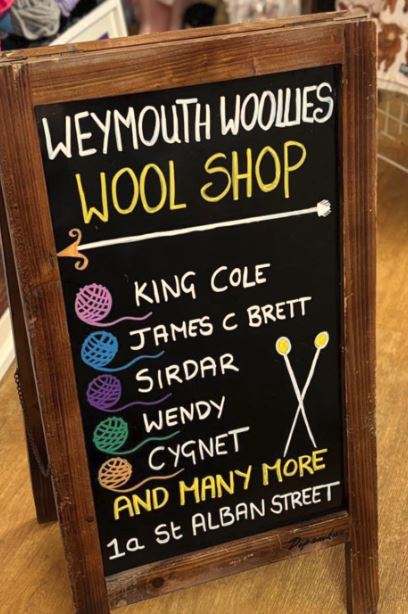 WEYMOUTH WOOLLIES
WOOL SHOP
KING COLE
JAMES C BRETT
SIRDAR
WENDY
CYGNET
AND MANY MORE
1a St ALBAN STREET